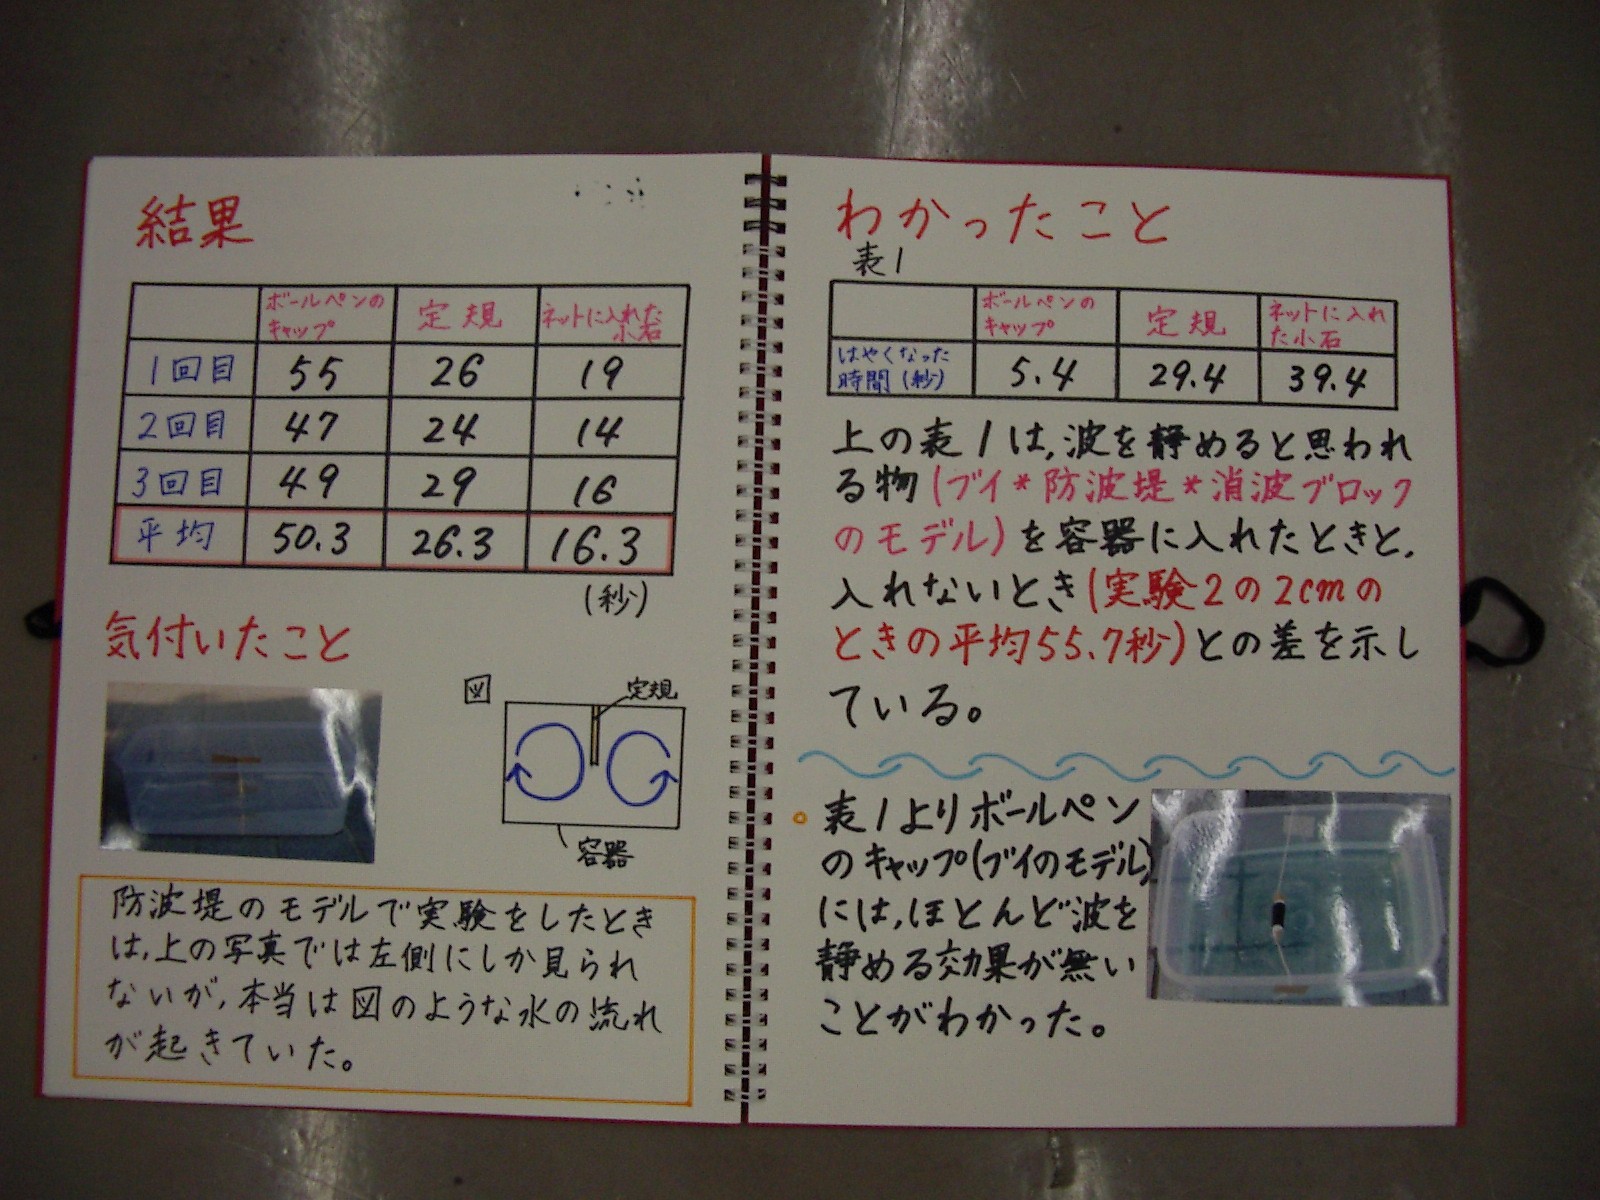 結果
ボールペンの
キャップ
定規
ネットに入れた
小石
1回目 55 26 19
2回目 47 24 14
3回目 49 29 16
平均 50.3 26.3 16.3
(秒)
気付いたこと
図
定規
容器
防波堤のモデルで実験をしたとき
は,上の写真では左側にしか見られ
ないが,本当は図のような水の流れ
が起きていた。
わかったこと
表1
ボールペンの
キャップ
定規
ネットに入れ
た小石
はやくなった
時間(秒)
5.4 29.4 39.4
上の表1は,波を静めると思われ
る物(ブイ*防波堤*消波ブロック
のモデル)を容器に入れたときと,
入れないとき(実験2の2cmの
ときの平均55.7秒)との差を示し
ている。
表1よりボールペン
のキャップ(ブイのモデル)
には,ほとんど波を
静める効果が無い
ことがわかった。